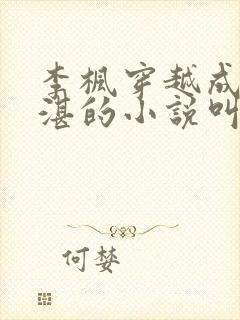 李楓穿越成
湛的小說叫
何婪